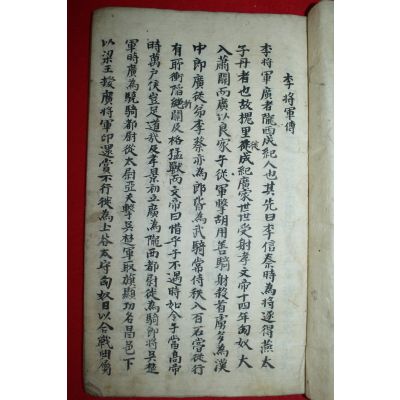 李將軍傳
李將軍廣者隴西成紀人也其先曰李信秦時為將逐得燕太
子丹者也故槐里徙成紀廣家世世受射孝文帝十四年匈奴大
入蕭關而廣以良家子從軍擊胡用善騎射殺首虜多為漢
中郎廣從弟李蔡亦為郎皆為武騎常侍秩八百石嘗從行
有所衝陷折關及格猛獸而文帝曰惜乎子不遇時如令子當高帝
時萬戶侯豈足道哉及孝景初立廣為隴西都尉徙為騎郎將吳楚
軍時廣為驍騎都尉從太尉亞夫擊吳楚軍取旗顯功名昌邑下
以梁王授廣將軍印還賞不行徙為上谷太守匈奴日以合戰